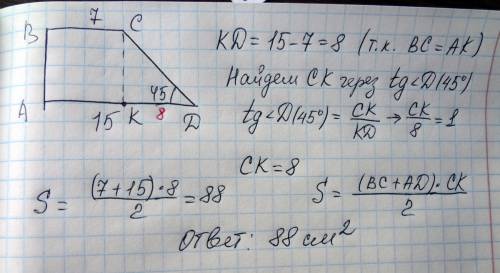 7
B
C
45
A
15
K
8
D
KD = 15 - 7 = 8 (т.к. BC = AK)
Найдем CK через tg<D(45°)
tg<D(45°) = CK/KD → CK/8 = 1
CK = 8
S = (7+15)·8/2 = 88
S = (BC+AD)·CK/2
Ответ: 88 см²